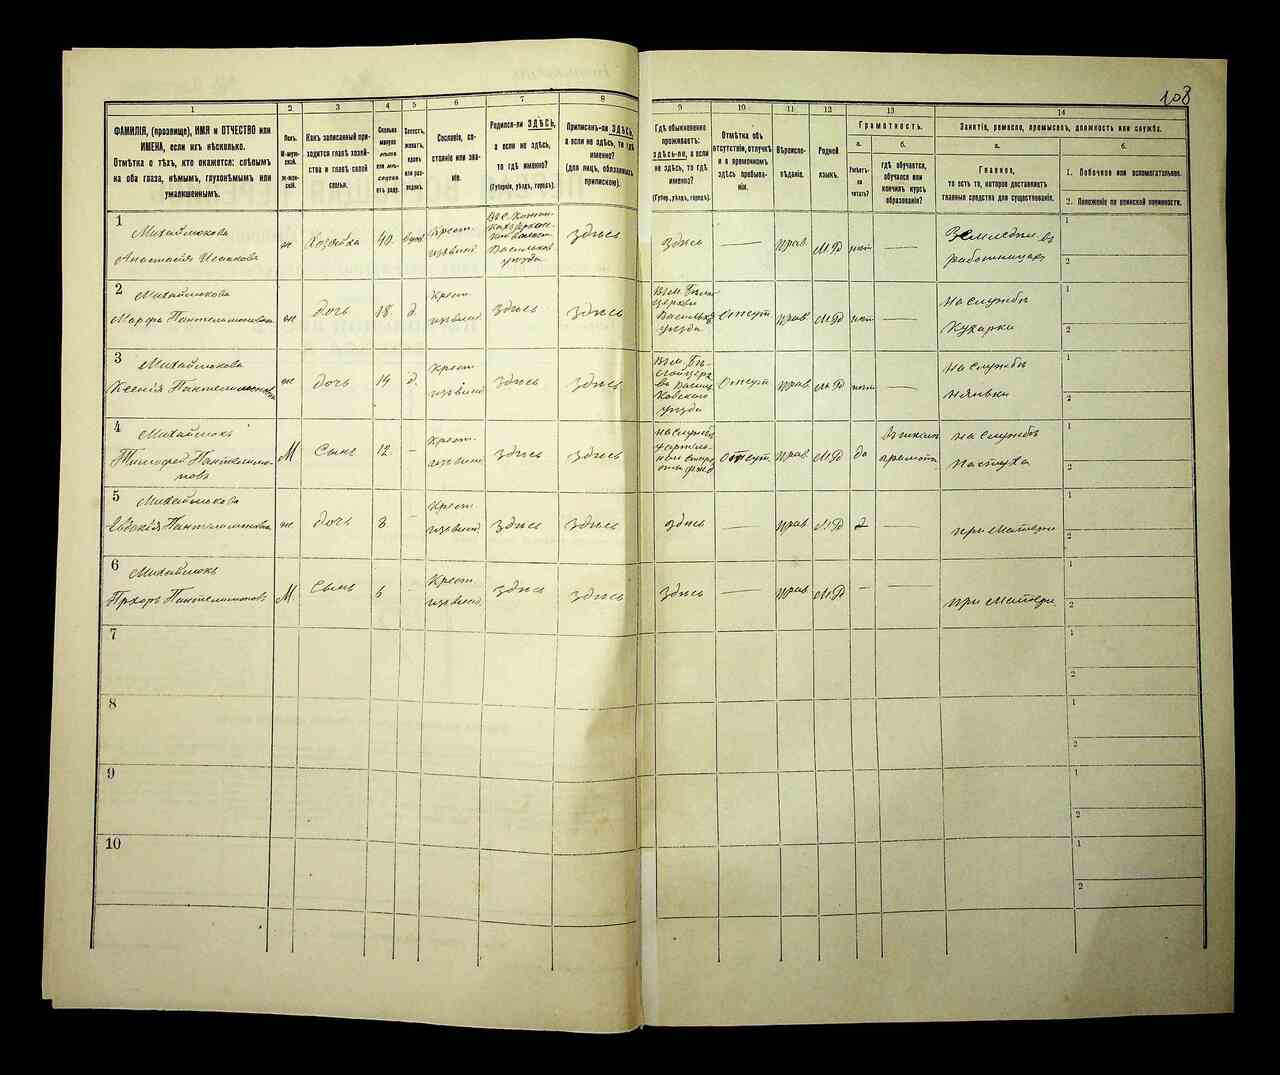 108
1
2.
3
4
5
6
7
8
9
10
11
12
13
14
ФАМИЛІЯ, (прозвище), ИМЯ и ОТЧЕСТВО или
ИМЕНА, если ихъ нѣсколько.
Отмѣтка о тѣхъ, кто окажется: слѣпымъ
на оба глаза, нѣмымъ, глухонѣмымъ или
умалишеннымъ.
Полъ.
М-муж-
ской.
ж-жен-
скій.
Какъ записанный при-
ходится главѣ хозяй-
ства и главѣ своей
семьи.
Сколько
минуло
лѣтъ
или мѣ-
сяцевъ
отъ роду.
Холостъ,
женатъ,
вдовъ
или раз-
веденъ.
Сословіе, со-
стояніе или зва-
ніе.
Родился-ли ЗДѢСЬ,
а если не здѣсь,
то гдѣ именно?
(Губернія, уѣздъ, городъ).
Приписанъ-ли ЗДѢСЬ,
а если не здѣсь, то гдѣ
именно?
(для лицъ, обязанныхъ
припискою).
Гдѣ обыкновенно
проживаетъ:
здѣсь-ли, а если
не здѣсь, то гдѣ
именно?
(Губер., уѣздъ, городъ).
Отмѣтка объ
отсутствіи, отлучкѣ
и о временномъ
здѣсь пребыва-
ніи.
Вѣроиспо-
вѣданіе.
Родной
языкъ.
Грамотность.
а.
Умѣетъ-
ли
читать?
б.
гдѣ обучается,
обучался или
кончилъ курсъ
образованія?
Занятіе, ремесло, промыселъ, должность или служба.
а.
Главное,
то есть то, которое доставляетъ
главныя средства для существованія.
б.
1. Побочное или вспомогательное.
2. Положеніе по воинской повинности.
1
Михайлюкова
Анастасія Исаакова
ж
Хозяйка
40.
вдова
Крест.
изъ влад.
Васильков.
уѣзда
здѣсь
здѣсь
—
прав.
МР
нѣт
—
Земледѣл.
работница
1
2
2
Михайлюкова
Марфа Пантелимонова
ж
дочь
18.
д.
Крест.
изъ влад.
здѣсь
здѣсь
церкви
Васильк.
уѣзда
Отсут.
прав.
МР
нѣт
—
на службѣ
Кухарки
1
2
3
Михайлюкова
Ксенія Пантелимонова
ж
дочь
14
д.
Крест.
изъ влад.
здѣсь
здѣсь
Василь
ковского
уѣзда
Отсут.
прав.
МР
нѣт
—
на службѣ
няньки
1
2
4
Михайлюкъ
Тимофей Пантелимо-
новъ
М
Сынъ
12.
-
Крест.
изъ влад.
здѣсь
здѣсь
на службѣ
отсут.
прав.
МР
да
грамотѣ
на службѣ
пастуха
1
2
5
Михайлюкова
Евдокія Пантелимонова
ж
дочь
8.
-
Крест.
изъ влад.
здѣсь
здѣсь
здѣсь
—
прав
МР
—
при матери
1
2
6
Михайлюкъ
Прхоръ Пантелимоновъ
М.
Сынъ
-
Крест.
изъ влад.
здѣсь
здѣсь
здѣсь
—
прав.
МР
-
—
при матери.
1
2
7
1
2
8
1
2
9
1
2
10
1
2